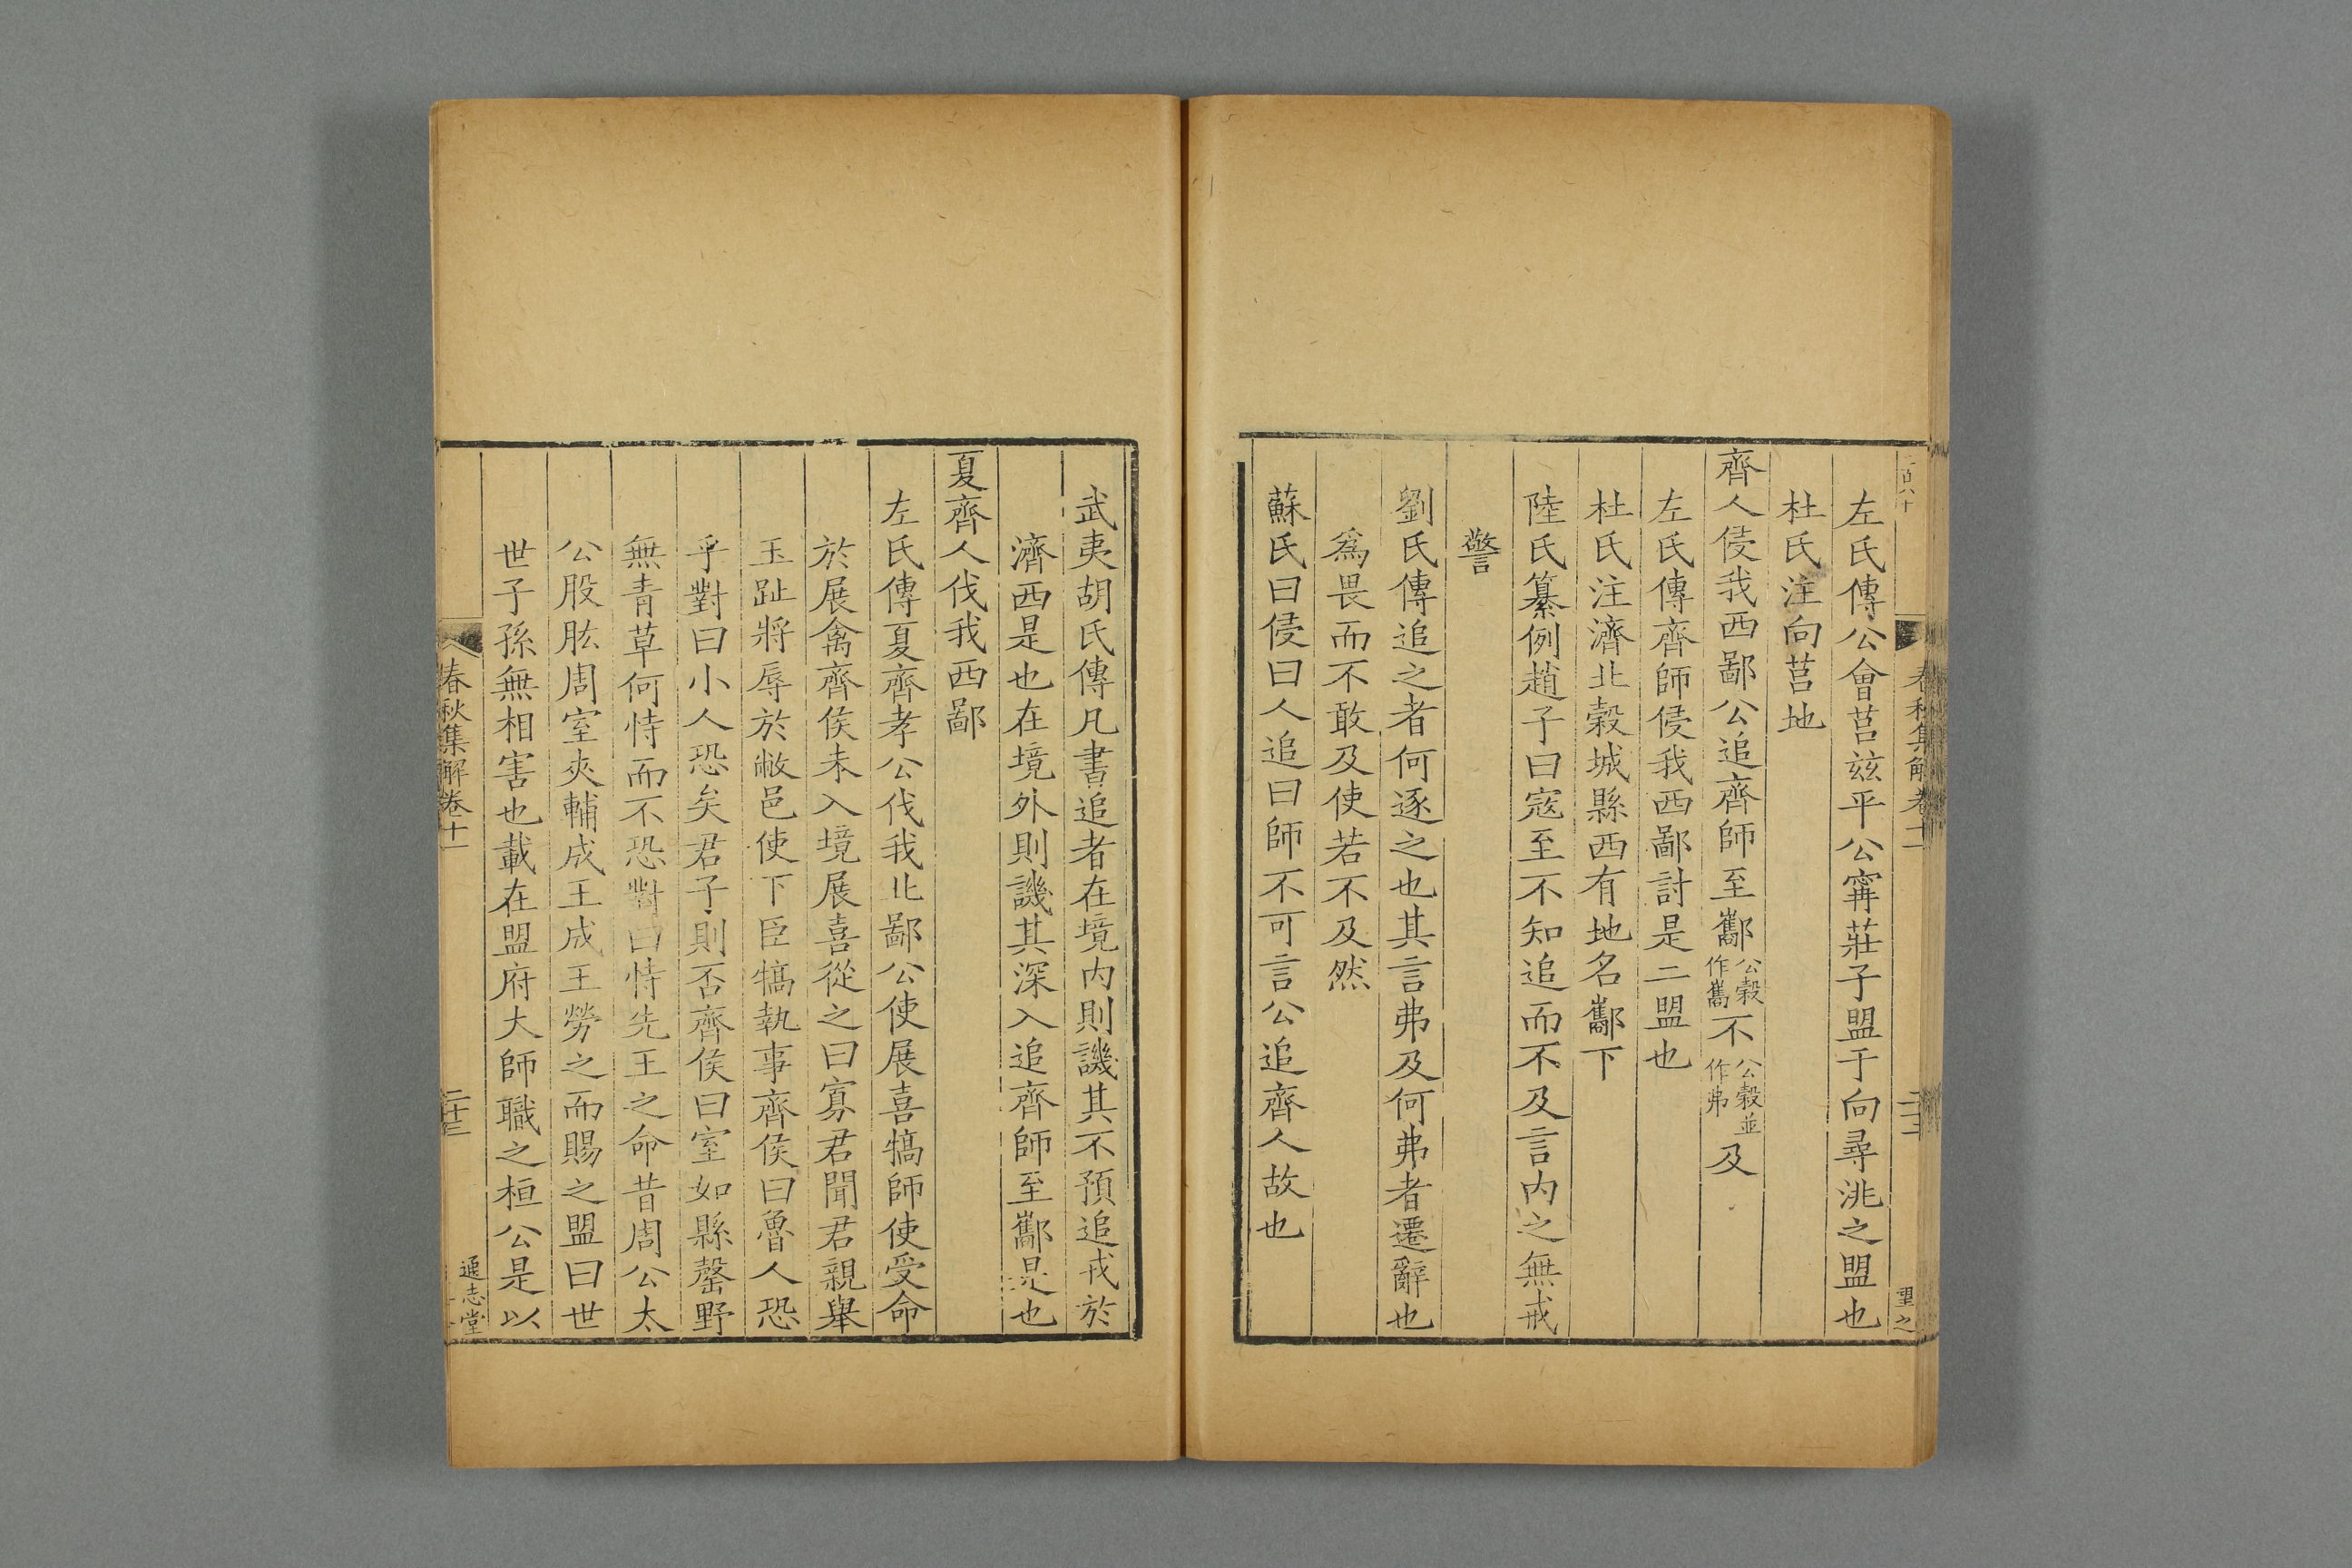 左氏傳公會莒玆平公甯莊子盟于向尋洮之盟也
杜氏注向莒地
齊人侵我西鄙公追齊師至酅公穀作巂不公穀並作弗及
左氏傳齊師侵我西鄙討是二盟也
杜氏注濟北穀城縣西有地名酅下
陸氏纂例趙子曰寇至不知追而不及言内之無戒
警
劉氏傳追之者何逐之也其言弗及何弗者遷辭也
爲畏而不敢及使若不及然
蘇氏曰侵曰人追曰師不可言公追齊人故也
武夷胡氏傳凡書追者在境内則譏其不預追戎於
濟西是也在境外則譏其深入追齊師至酅是也
夏齊人伐我西鄙
左氏傳夏齊孝公伐我北鄙公使展喜犒師使受命
於展禽齊侯未入境展喜從之曰寡君聞君親舉
玉趾將辱於敝邑使下臣犒執事齊侯曰魯人恐
乎對曰小人恐矣君子則否齊侯曰室如縣罄野
無青草何恃而不恐對曰恃先王之命昔周公太
公股肱周室夾輔成王成王勞之而賜之盟曰世
世子孫無相害也載在盟府大師職之桓公是以
春秋集解卷十一
二十三
通志堂